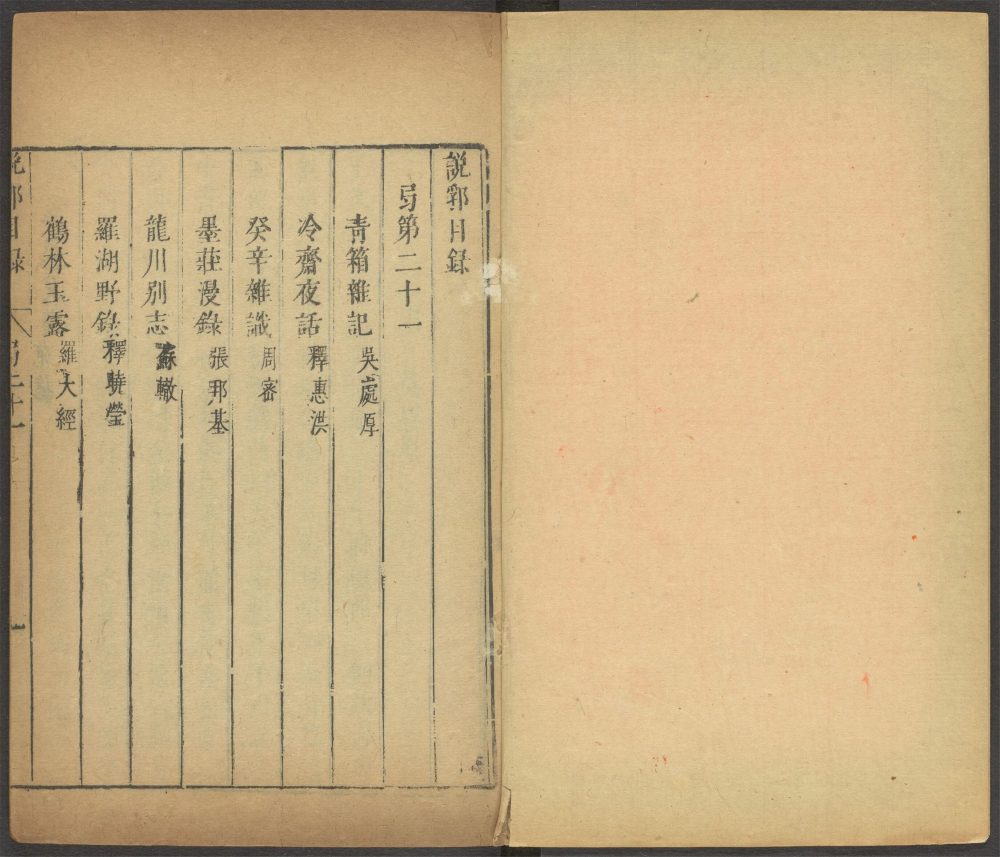 說郛目錄
弓第二十一
青箱雜記 吳處厚
冷齋夜話 釋惠洪
癸辛雜識 周密
墨莊漫錄 張邦基
龍川別志 蘇轍
羅湖野錄 釋曉瑩
鶴林玉露 羅大經
說郛目錄 弓二十一 一